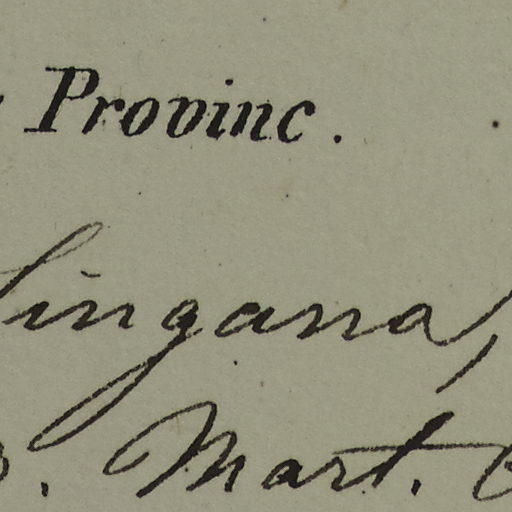 Provinc.
lingana,
. Mart.